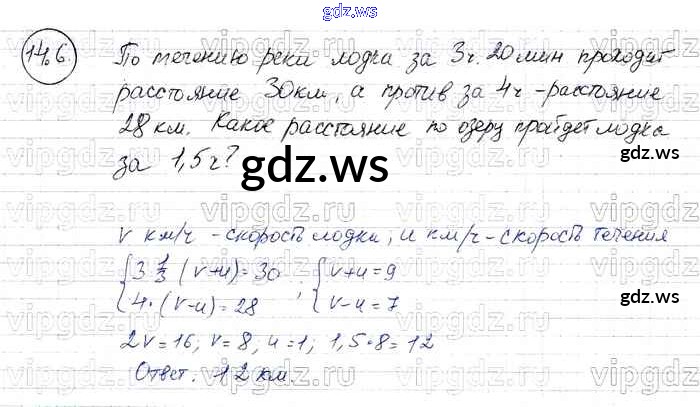 gdz.ws
14.6. По течению реки лодка за 3ч. 20 мин проходит
расстояние 30км, а против за 4ч - расстояние
28 км. Какое расстояние по озеру пройдет лодка
за 1,5 ч?
gdz.ws
v км/ч - скорость лодки; u км/ч - скорость течения
{3 1/3 (v+u)=30 ; {v+u=9
{4·(v-u)=28 {v-u=7
gdz.ws
2v=16; v=8, u=1; 1,5·8=12
Ответ. 12 км.
gdz.ws